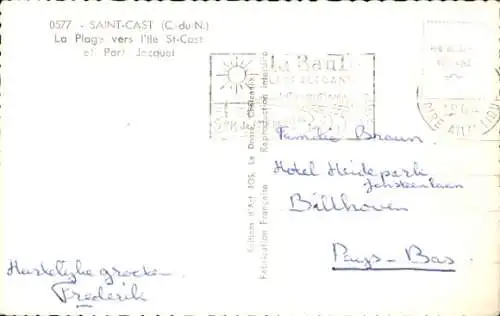 0577 - SAINT-CAST (C.-du-N.)
La Plage vers l'Ile St-Cast
et Port Jacquet
La Baule
Editions d'Art JOS, Le Doaré, Châteaulin
Fabrication Française Reproduction interdite
Familie Braun.
Hotel Heidepark
Jan Steenlaan
Bilthoven
Pays-Bas
Hartelijke groeten
Frederik